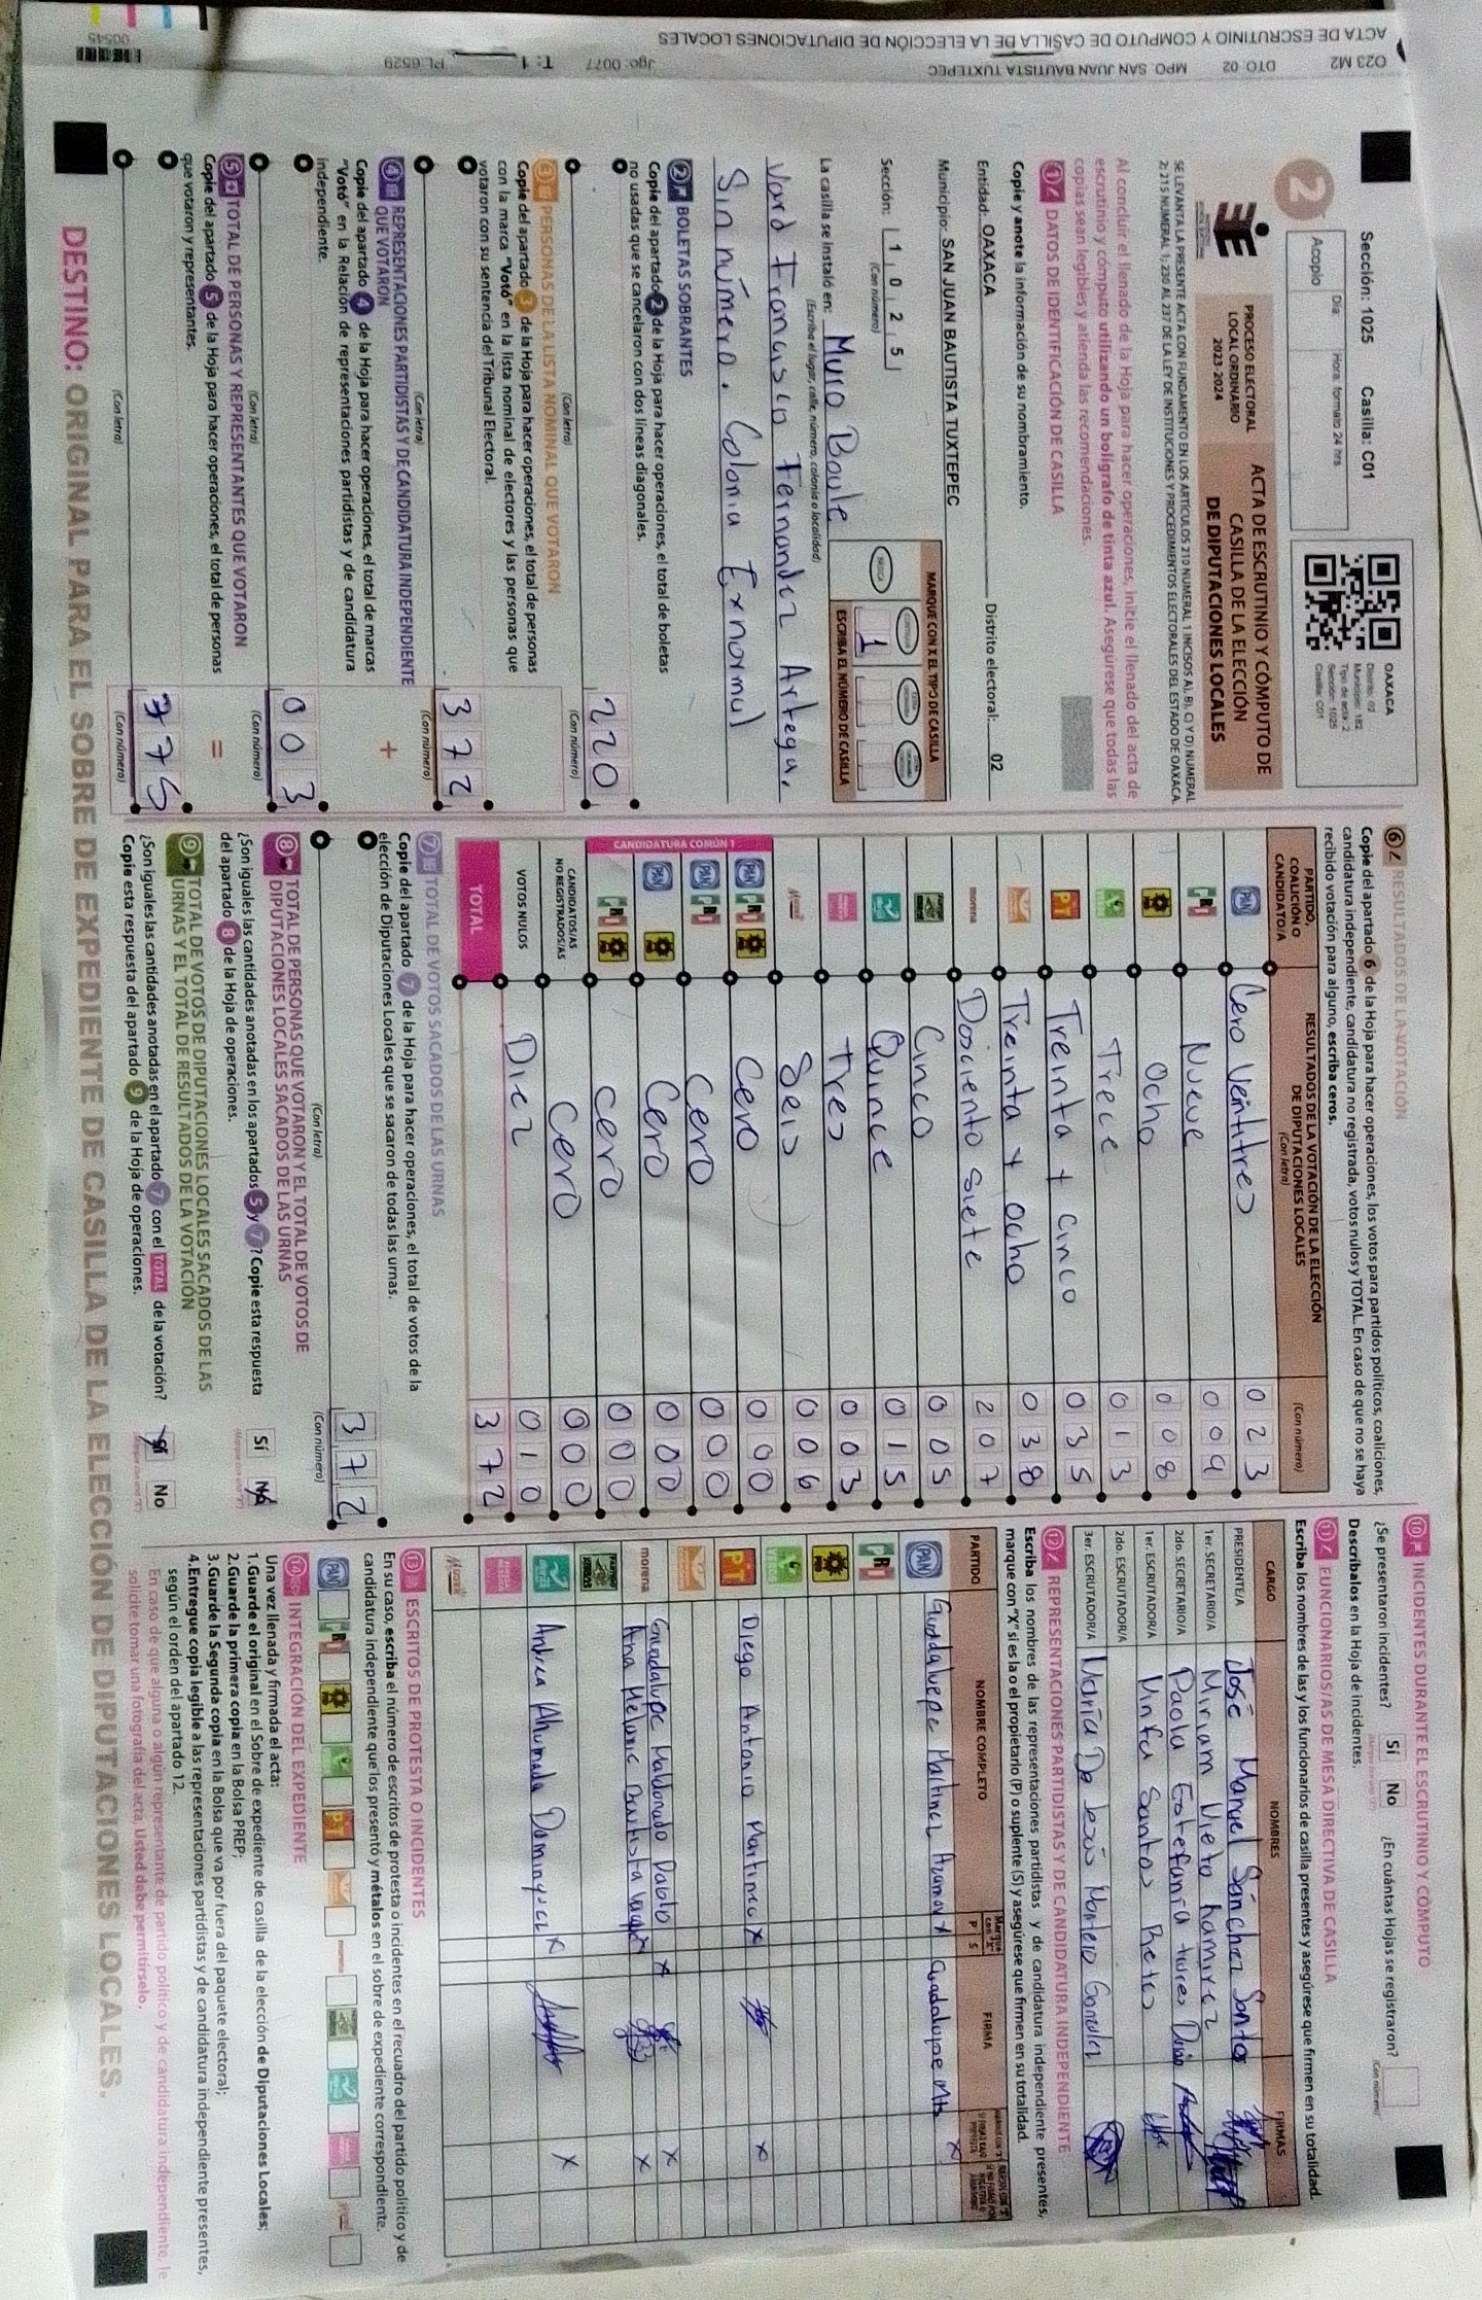 Sección: 1025 Casilla: C01
2
Acopio
Día:
Hora, formato 24 hrs
OAXACA
Distrito: 02
Municipio: 182
Tipo de acta: 2
Sección: 1025
Casilla: C01
PROCESO ELECTORAL
LOCAL ORDINARIO
2023-2024
ACTA DE ESCRUTINIO Y CÓMPUTO DE
CASILLA DE LA ELECCIÓN
DE DIPUTACIONES LOCALES
SE LEVANTA LA PRESENTE ACTA CON FUNDAMENTO EN LOS ARTÍCULOS 210 NUMERAL 1 INCISOS A), B), C) Y D) NUMERAL
2; 215 NUMERAL 1; 230 AL 237 DE LA LEY DE INSTITUCIONES Y PROCEDIMIENTOS ELECTORALES DEL ESTADO DE OAXACA.
Al concluir el llenado de la Hoja para hacer operaciones, inicie el llenado del acta de
escrutinio y cómputo utilizando un bolígrafo de tinta azul. Asegúrese que todas las
copias sean legibles y atienda las recomendaciones.
1 DATOS DE IDENTIFICACIÓN DE CASILLA
Copie y anote la información de su nombramiento.
Entidad: OAXACA Distrito electoral: 02
Municipio: SAN JUAN BAUTISTA TUXTEPEC
Sección: 1 0 2 5
(Con número)
MARQUE CON X EL TIPO DE CASILLA
1
ESCRIBA EL NÚMERO DE CASILLA
La casilla se instaló en: Muro Boule
(Escriba el lugar, calle, número, colonia o localidad)
Vard Francisco Fernandez Artega,
Sin número. Colonia Exnormal
2 BOLETAS SOBRANTES
Copie del apartado 2 de la Hoja para hacer operaciones, el total de boletas
no usadas que se cancelaron con dos líneas diagonales.
220
(Con letra) (Con número)
3 PERSONAS DE LA LISTA NOMINAL QUE VOTARON
Copie del apartado 3 de la Hoja para hacer operaciones, el total de personas
con la marca "Votó" en la lista nominal de electores y las personas que
votaron con su sentencia del Tribunal Electoral.
372
(Con letra) (Con número)
4 REPRESENTACIONES PARTIDISTAS Y DE CANDIDATURA INDEPENDIENTE
QUE VOTARON
+
Copie del apartado 4 de la Hoja para hacer operaciones, el total de marcas
"Votó" en la Relación de representaciones partidistas y de candidatura
independiente.
003
(Con letra) (Con número)
5 TOTAL DE PERSONAS Y REPRESENTANTES QUE VOTARON
=
Copie del apartado 5 de la Hoja para hacer operaciones, el total de personas
que votaron y representantes.
375
(Con letra) (Con número)
6 RESULTADOS DE LA VOTACIÓN
Copie del apartado 6 de la Hoja para hacer operaciones, los votos para partidos políticos, coaliciones,
candidatura independiente, candidatura no registrada, votos nulos y TOTAL. En caso de que no se haya
recibido votación para alguno, escriba ceros.
PARTIDO,
COALICIÓN O
CANDIDATO/A
RESULTADOS DE LA VOTACIÓN DE LA ELECCIÓN
DE DIPUTACIONES LOCALES
(Con letra)
(Con número)
PAN Cero Veintitres 023
PRI Nueve 009
PRD Ocho 008
Trece 013
PT Treinta y cinco 035
Treinta y ocho 038
morena Dosciento siete 207
Cinco 005
Quince 015
Tres 003
Seis 006
CANDIDATURA COMÚN 1
PAN PRI PRD Cero 000
PAN PRI Cero 000
PAN PRD Cero 000
PRI PRD Cero 000
CANDIDATOS/AS
NO REGISTRADOS/AS Cero 000
VOTOS NULOS Diez 010
TOTAL 372
7 TOTAL DE VOTOS SACADOS DE LAS URNAS
Copie del apartado 7 de la Hoja para hacer operaciones, el total de votos de la
elección de Diputaciones Locales que se sacaron de todas las urnas.
372
(Con letra) (Con número)
8 TOTAL DE PERSONAS QUE VOTARON Y EL TOTAL DE VOTOS DE
DIPUTACIONES LOCALES SACADOS DE LAS URNAS
¿Son iguales las cantidades anotadas en los apartados 5 y 7? Copie esta respuesta
del apartado 8 de la Hoja de operaciones.
Sí No
9 TOTAL DE VOTOS DE DIPUTACIONES LOCALES SACADOS DE LAS
URNAS Y EL TOTAL DE RESULTADOS DE LA VOTACIÓN
¿Son iguales las cantidades anotadas en el apartado 7 con el TOTAL de la votación?
Copie esta respuesta del apartado 9 de la Hoja de operaciones.
Sí No
10 INCIDENTES DURANTE EL ESCRUTINIO Y CÓMPUTO
¿Se presentaron incidentes? Sí No ¿En cuántas Hojas se registraron?
(Con número)
Descríbalos en la Hoja de incidentes.
11 FUNCIONARIOS/AS DE MESA DIRECTIVA DE CASILLA
Escriba los nombres de las y los funcionarios de casilla presentes y asegúrese que firmen en su totalidad.
CARGO NOMBRES FIRMAS
PRESIDENTE/A José Manuel Sánchez Santos
1er. SECRETARIO/A Miriam Nieto Ramirez
2do. SECRETARIO/A Paola Estefania
1er. ESCRUTADOR/A Ninfa Santos Reyes
2do. ESCRUTADOR/A
3er. ESCRUTADOR/A María De Jesús Montero González
12 REPRESENTACIONES PARTIDISTAS Y DE CANDIDATURA INDEPENDIENTE
Escriba los nombres de las representaciones partidistas y de candidatura independiente presentes,
marque con "X" si es la o el propietario (P) o suplente (S) y asegúrese que firmen en su totalidad.
PARTIDO NOMBRE COMPLETO P S FIRMA
PAN Guadaluepe Martinez X Guadalupe X
PRI
PRD
PT Diego Antonio Martinez X X
morena Guadalupe Maldonado Pablo X X
Ana Melanie Bautista X X
Andrea Ahumada Dominguez X X
13 ESCRITOS DE PROTESTA O INCIDENTES
En su caso, escriba el número de escritos de protesta o incidentes en el recuadro del partido político y de
candidatura independiente que los presentó y métalos en el sobre de expediente correspondiente.
14 INTEGRACIÓN DEL EXPEDIENTE
Una vez llenada y firmada el acta:
1.Guarde el original en el Sobre de expediente de casilla de la elección de Diputaciones Locales;
2.Guarde la primera copia en la Bolsa PREP;
3.Guarde la Segunda copia en la Bolsa que va por fuera del paquete electoral;
4.Entregue copia legible a las representaciones partidistas y de candidatura independiente presentes,
según el orden del apartado 12.
En caso de que alguna o algún representante de partido político y de candidatura independiente, le
solicite tomar una fotografía del acta, Usted debe permitírselo.
DESTINO: ORIGINAL PARA EL SOBRE DE EXPEDIENTE DE CASILLA DE LA ELECCIÓN DE DIPUTACIONES LOCALES.
O23 M2 DTO. 02 MPO. SAN JUAN BAUTISTA TUXTEPEC Jgo: 0077 T: 1 PL: 6529
ACTA DE ESCRUTINIO Y COMPUTO DE CASILLA DE LA ELECCIÓN DE DIPUTACIONES LOCALES
00545